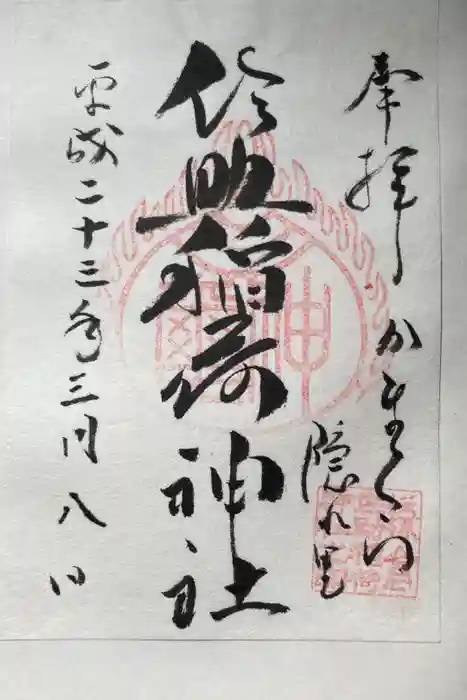 奉拝 かまくら
隠れ里
佐助稲荷神社
平成二十三年三月八日